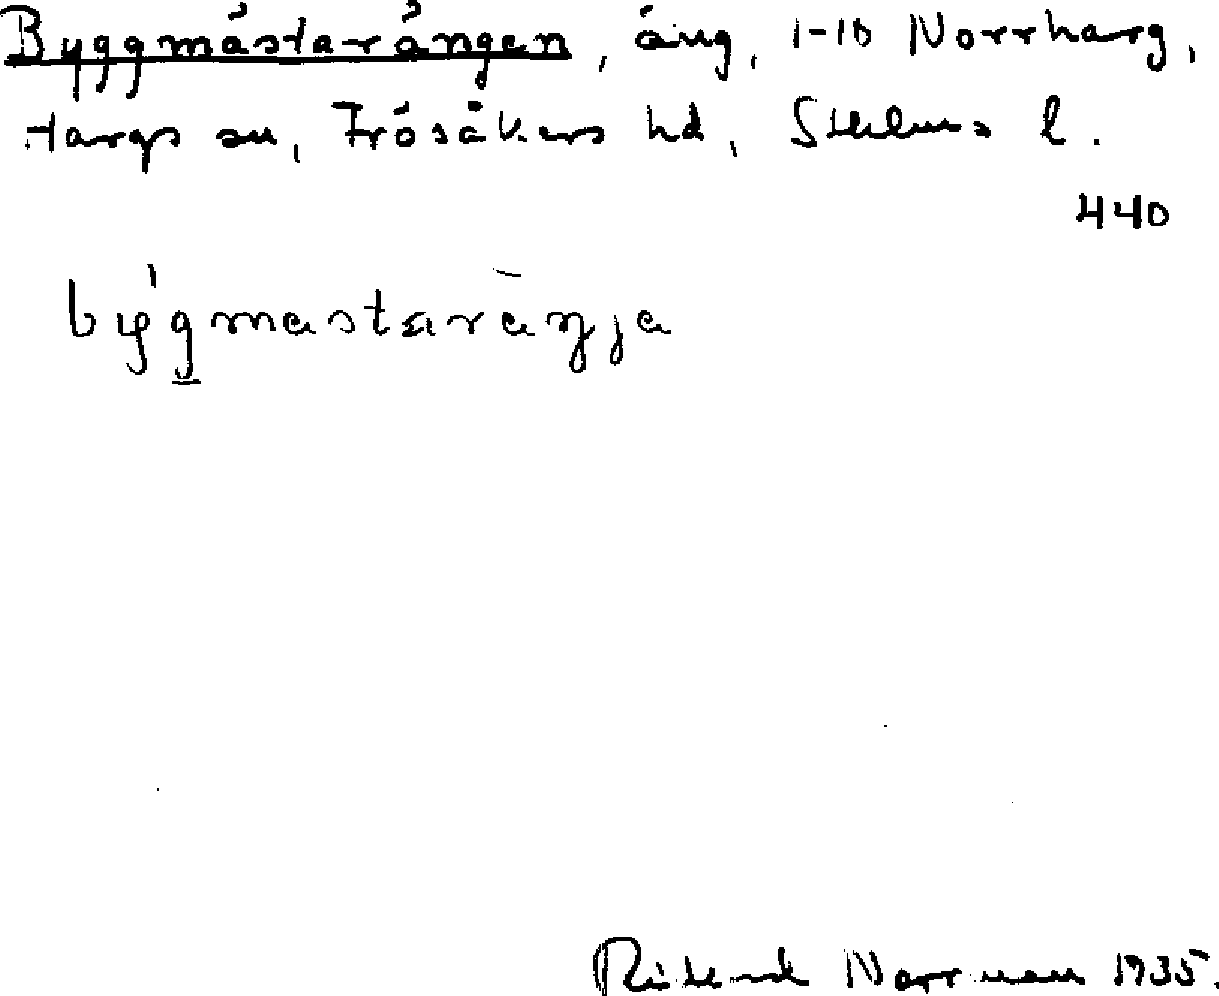 Byggmästarängen, äng, 1-10 Norrharg,
Hargs sn, Frösåkers hd, Sthlms l.
440
býgmastaräŋja
Rikard Norrman 1935.